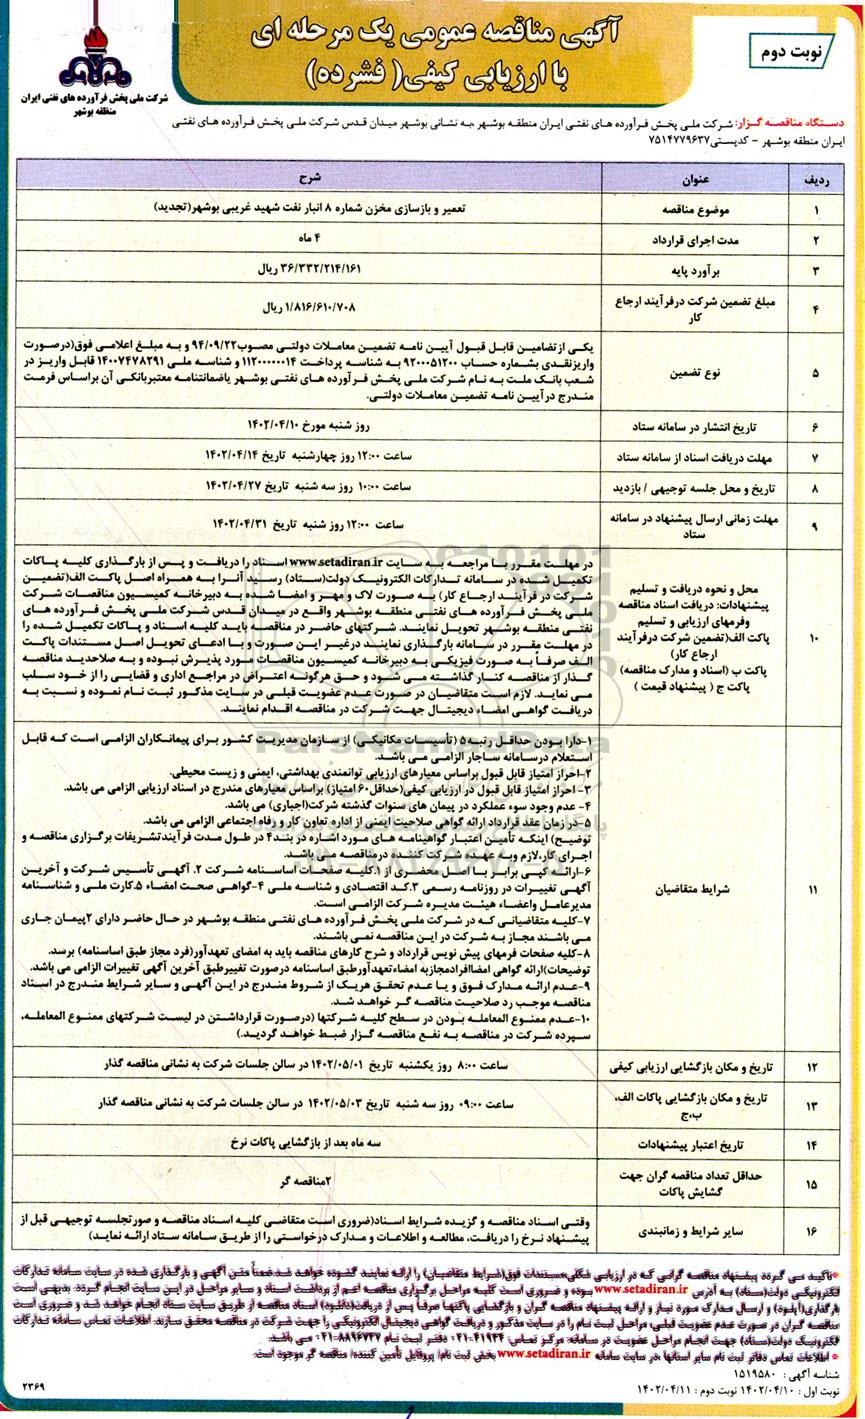 آگهی مناقصه عمومی یک مرحله ای
با ارزیابی کیفی( فشرده)
نوبت دوم
شرکت ملی پخش فرآورده های نفتی ایران
منطقه بوشهر
دستگاه مناقصه گزار: شرکت ملی پخش فرآورده های نفتی ایران منطقه بوشهر ،به نشانی بوشهر میدان قدس شرکت ملی پخش فرآورده های نفتی
ایران منطقه بوشهر - کدپستی۷۵۱۴۷۷۹۶۳۷
ردیف عنوان شرح
۱ موضوع مناقصه تعمیر و بازسازی مخزن شماره ۸ انبار نفت شهید غریبی بوشهر(تجدید)
۲ مدت اجرای قرارداد ۴ ماه
۳ برآورد پایه ۳۶/۳۳۲/۲۱۴/۱۶۱ ریال
۴ مبلغ تضمین شرکت درفرآیند ارجاع
کار
۱/۸۱۶/۶۱۰/۷۰۸ ریال
۵ نوع تضمین
یکی ازتضامین قابل قبول آیین نامه تضمین معاملات دولتی مصوب۹۴/۰۹/۲۲ و به مبلغ اعلامی فوق(درصورت
واریزنقدی بشماره حساب ۹۲۰۰۰۵۱۲۰۰ به شناسه پرداخت ۱۱۲۰۰۰۰۰۰۱۴ و شناسه ملی ۱۴۰۰۷۴۷۸۲۹۱ قابل واریز در
شعب بانک ملت به نام شرکت ملی پخش فرآورده های نفتی بوشهر یاضمانتنامه معتبربانکی آن براساس فرمت
مندرج درآیین نامه تضمین معاملات دولتی.
۶ تاریخ انتشار در سامانه ستاد روز شنبه مورخ ۱۴۰۲/۰۴/۱۰
۷ مهلت دریافت اسناد از سامانه ستاد ساعت ۱۲:۰۰ روز چهارشنبه تاریخ ۱۴۰۲/۰۴/۱۴
۸ تاریخ و محل جلسه توجیهی / بازدید ساعت ۱۰:۰۰ روز سه شنبه تاریخ ۱۴۰۲/۰۴/۲۷
۹ مهلت زمانی ارسال پیشنهاد در سامانه
ستاد
ساعت ۱۲:۰۰ روز شنبه تاریخ ۱۴۰۲/۰۴/۳۱
۱۰
محل و نحوه دریافت و تسلیم
پیشنهادات: دریافت اسناد مناقصه
وفرمهای ارزیابی و تسلیم
پاکت الف(تضمین شرکت درفرآیند
ارجاع کار)
پاکت ب (اسناد و مدارک مناقصه)
پاکت ج ( پیشنهاد قیمت )
در مهلت مقرر با مراجعه به سایت www.setadiran.ir اسناد را دریافت و پس از بارگذاری کلیه پاکات
تکمیل شده در سامانه تدارکات الکترونیک دولت(ستاد) رسید آنرا به همراه اصل پاکت الف(تضمین
شرکت در فرآیند ارجاع کار) به صورت لاک و مهر و امضا شده به دبیرخانه کمیسیون مناقصات شرکت
ملی پخش فرآورده های نفتی منطقه بوشهر واقع در میدان قدس شرکت ملی پخش فرآورده های
نفتی منطقه بوشهر تحویل نمایند. شرکتهای حاضر در مناقصه باید کلیه اسناد و پاکات تکمیل شده را
در مهلت مقرر در سامانه بارگذاری نمایند درغیر این صورت و با ادعای تحویل اصل مستندات پاکت
الف صرفاً به صورت فیزیکی به دبیرخانه کمیسیون مناقصات مورد پذیرش نبوده و به صلاحدید مناقصه
گذار از مناقصه کنار گذاشته می شود و حق هرگونه اعتراض در مراجع اداری و قضایی را از خود سلب
می نماید. لازم است متقاضیان در صورت عدم عضویت قبلی در سایت مذکور ثبت نام نموده و نسبت به
دریافت گواهی امضاء دیجیتال جهت شرکت در مناقصه اقدام نمایند.
۱۱ شرایط متقاضیان
۱-دارا بودن حداقل رتبه۵ (تأسیسات مکانیکی) از سازمان مدیریت کشور برای پیمانکاران الزامی است که قابل
استعلام درسامانه ساجار الزامی می باشد.
۲-احراز امتیاز قابل قبول براساس معیارهای ارزیابی توانمندی بهداشتی، ایمنی و زیست محیطی.
۳- احراز امتیاز قابل قبول در ارزیابی کیفی(حداقل۶۰ امتیاز) براساس معیارهای مندرج در اسناد ارزیابی الزامی می باشد.
۴- عدم وجود سوء عملکرد در پیمان های سنوات گذشته شرکت(اجباری) می باشد.
۵-در زمان عقد قرارداد ارائه گواهی صلاحیت ایمنی از اداره تعاون کار و رفاه اجتماعی الزامی می باشد.
توضیح) اینکه تأمین اعتبار گواهینامه های مورد اشاره در بند۴ در طول مدت فرآیندتشریفات برگزاری مناقصه و
اجرای کار،لازم وبه عهده شرکت کننده درمناقصه می باشد.
۶-ارائه کپی برابر با اصل محضری از ۱.کلیه صفحات اساسنامه شرکت ۲. آگهی تأسیس شرکت و آخرین
آگهی تغییرات در روزنامه رسمی ۳.کد اقتصادی و شناسه ملی ۴-گواهی صحت امضاء ۵.کارت ملی و شناسنامه
مدیرعامل واعضاء هیئت مدیره شرکت الزامی است.
۷-کلیه متقاضیانی که در شرکت ملی پخش فرآورده های نفتی منطقه بوشهر در حال حاضر دارای ۲پیمان جاری
می باشند مجاز به شرکت در این مناقصه نمی باشند.
۸-کلیه صفحات فرمهای پیش نویس قرارداد و شرح کارهای مناقصه باید به امضای تعهدآور(فرد مجاز طبق اساسنامه) برسد.
توضیحات)ارائه گواهی امضاافرادمجازبه امضاءتعهدآورطبق اساسنامه درصورت تغییرطبق آخرین آگهی تغییرات الزامی می باشد.
۹-عدم ارائه مدارک فوق و یا عدم تحقق هریک از شروط مندرج در این آگهی و سایر شرایط مندرج در اسناد
مناقصه موجب رد صلاحیت مناقصه گر خواهد شد.
۱۰-عدم ممنوع المعامله بودن در سطح کلیه شرکتها (درصورت قرارداشتن در لیست شرکتهای ممنوع المعامله،
سپرده شرکت در مناقصه به نفع مناقصه گزار ضبط خواهد گردید.)
۱۲ تاریخ و مکان بازگشایی ارزیابی کیفی ساعت ۸:۰۰ روز یکشنبه تاریخ ۱۴۰۲/۰۵/۰۱ در سالن جلسات شرکت به نشانی مناقصه گذار
۱۳ تاریخ و مکان بازگشایی پاکات الف،
ب،ج
ساعت ۰۹:۰۰ روز سه شنبه تاریخ ۱۴۰۲/۰۵/۰۳ در سالن جلسات شرکت به نشانی مناقصه گذار
۱۴ تاریخ اعتبار پیشنهادات سه ماه بعد از بازگشایی پاکات نرخ
۱۵ حداقل تعداد مناقصه گران جهت
گشایش پاکات
۲مناقصه گر
۱۶ سایر شرایط و زمانبندی
وقتی اسناد مناقصه و گزیده شرایط اسناد(ضروری است متقاضی کلیه اسناد مناقصه و صورتجلسه توجیهی قبل از
پیشنهاد نرخ را دریافت، مطالعه و اطلاعات و مدارک درخواستی را از طریق سامانه ستاد ارائه نماید)
*تاکید می گردد پیشنهاد مناقصه گرانی که در ارزیابی شکلی،مستندات فوق(شرایط متقاضیان) را ارائه نمایند گشوده خواهد شد.ضمناً متن آگهی و بارگذاری شده در سایت سامانه تدارکات
الکترونیکی دولت(ستاد) به آدرس www.setadiran.ir بوده و ضروری است کلیه مراحل برگزاری مناقصه اعم از برداشت اسناد و سایر مراحل در این سایت انجام گردد. بدیهی است
بارگذاری(آپلود) و ارسال مدارک مورد نیاز و ارائه پیشنهاد مناقصه گران و بازگشایی پاکتها صرفاً پس از دریافت(دانلود) اسناد مناقصه از طریق سایت ستاد انجام خواهد شد و ضروری است
مناقصه گران در صورت عدم عضویت قبلی، مراحل ثبت نام را در سایت مذکور و دریافت گواهی دیجیتال الکترونیکی را جهت شرکت در مناقصه محقق سازند. اطلاعات تماس سامانه تدارکات
الکترونیک دولت(ستاد) جهت انجام مراحل عضویت در سامانه: مرکز تماس: ۴۱۹۳۴-۰۲۱ دفتر ثبت نام ۸۸۹۶۷۳۷-۰۲۱ می باشد.
* اطلاعات تماس دفاتر ثبت نام سایر استانها ،در سایت سامانه www.setadiran.ir بخش ثبت نام/ پروفایل تأمین کننده/ مناقصه گر موجود است.
شناسه آگهی : ۱۵۱۹۵۸۰
نوبت اول : ۱۴۰۲/۰۴/۱۰ نوبت دوم : ۱۴۰۲/۰۴/۱۱
۲۳۶۹